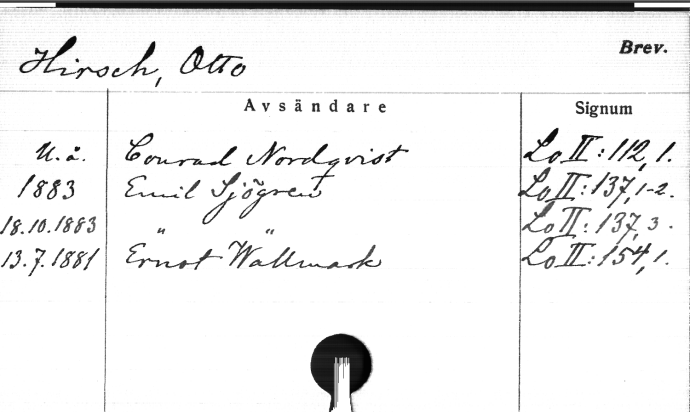 Hirsch, Otto Brev.
Avsändare Signum
U.å. Conrad Nordqvist Lo II:112,1.
1883 Emil Sjögren Lo II:137,1-2.
18.10.1883 " " Lo II:137,3.
13.7.1881 Ernst Wallmark Lo II:154,1.